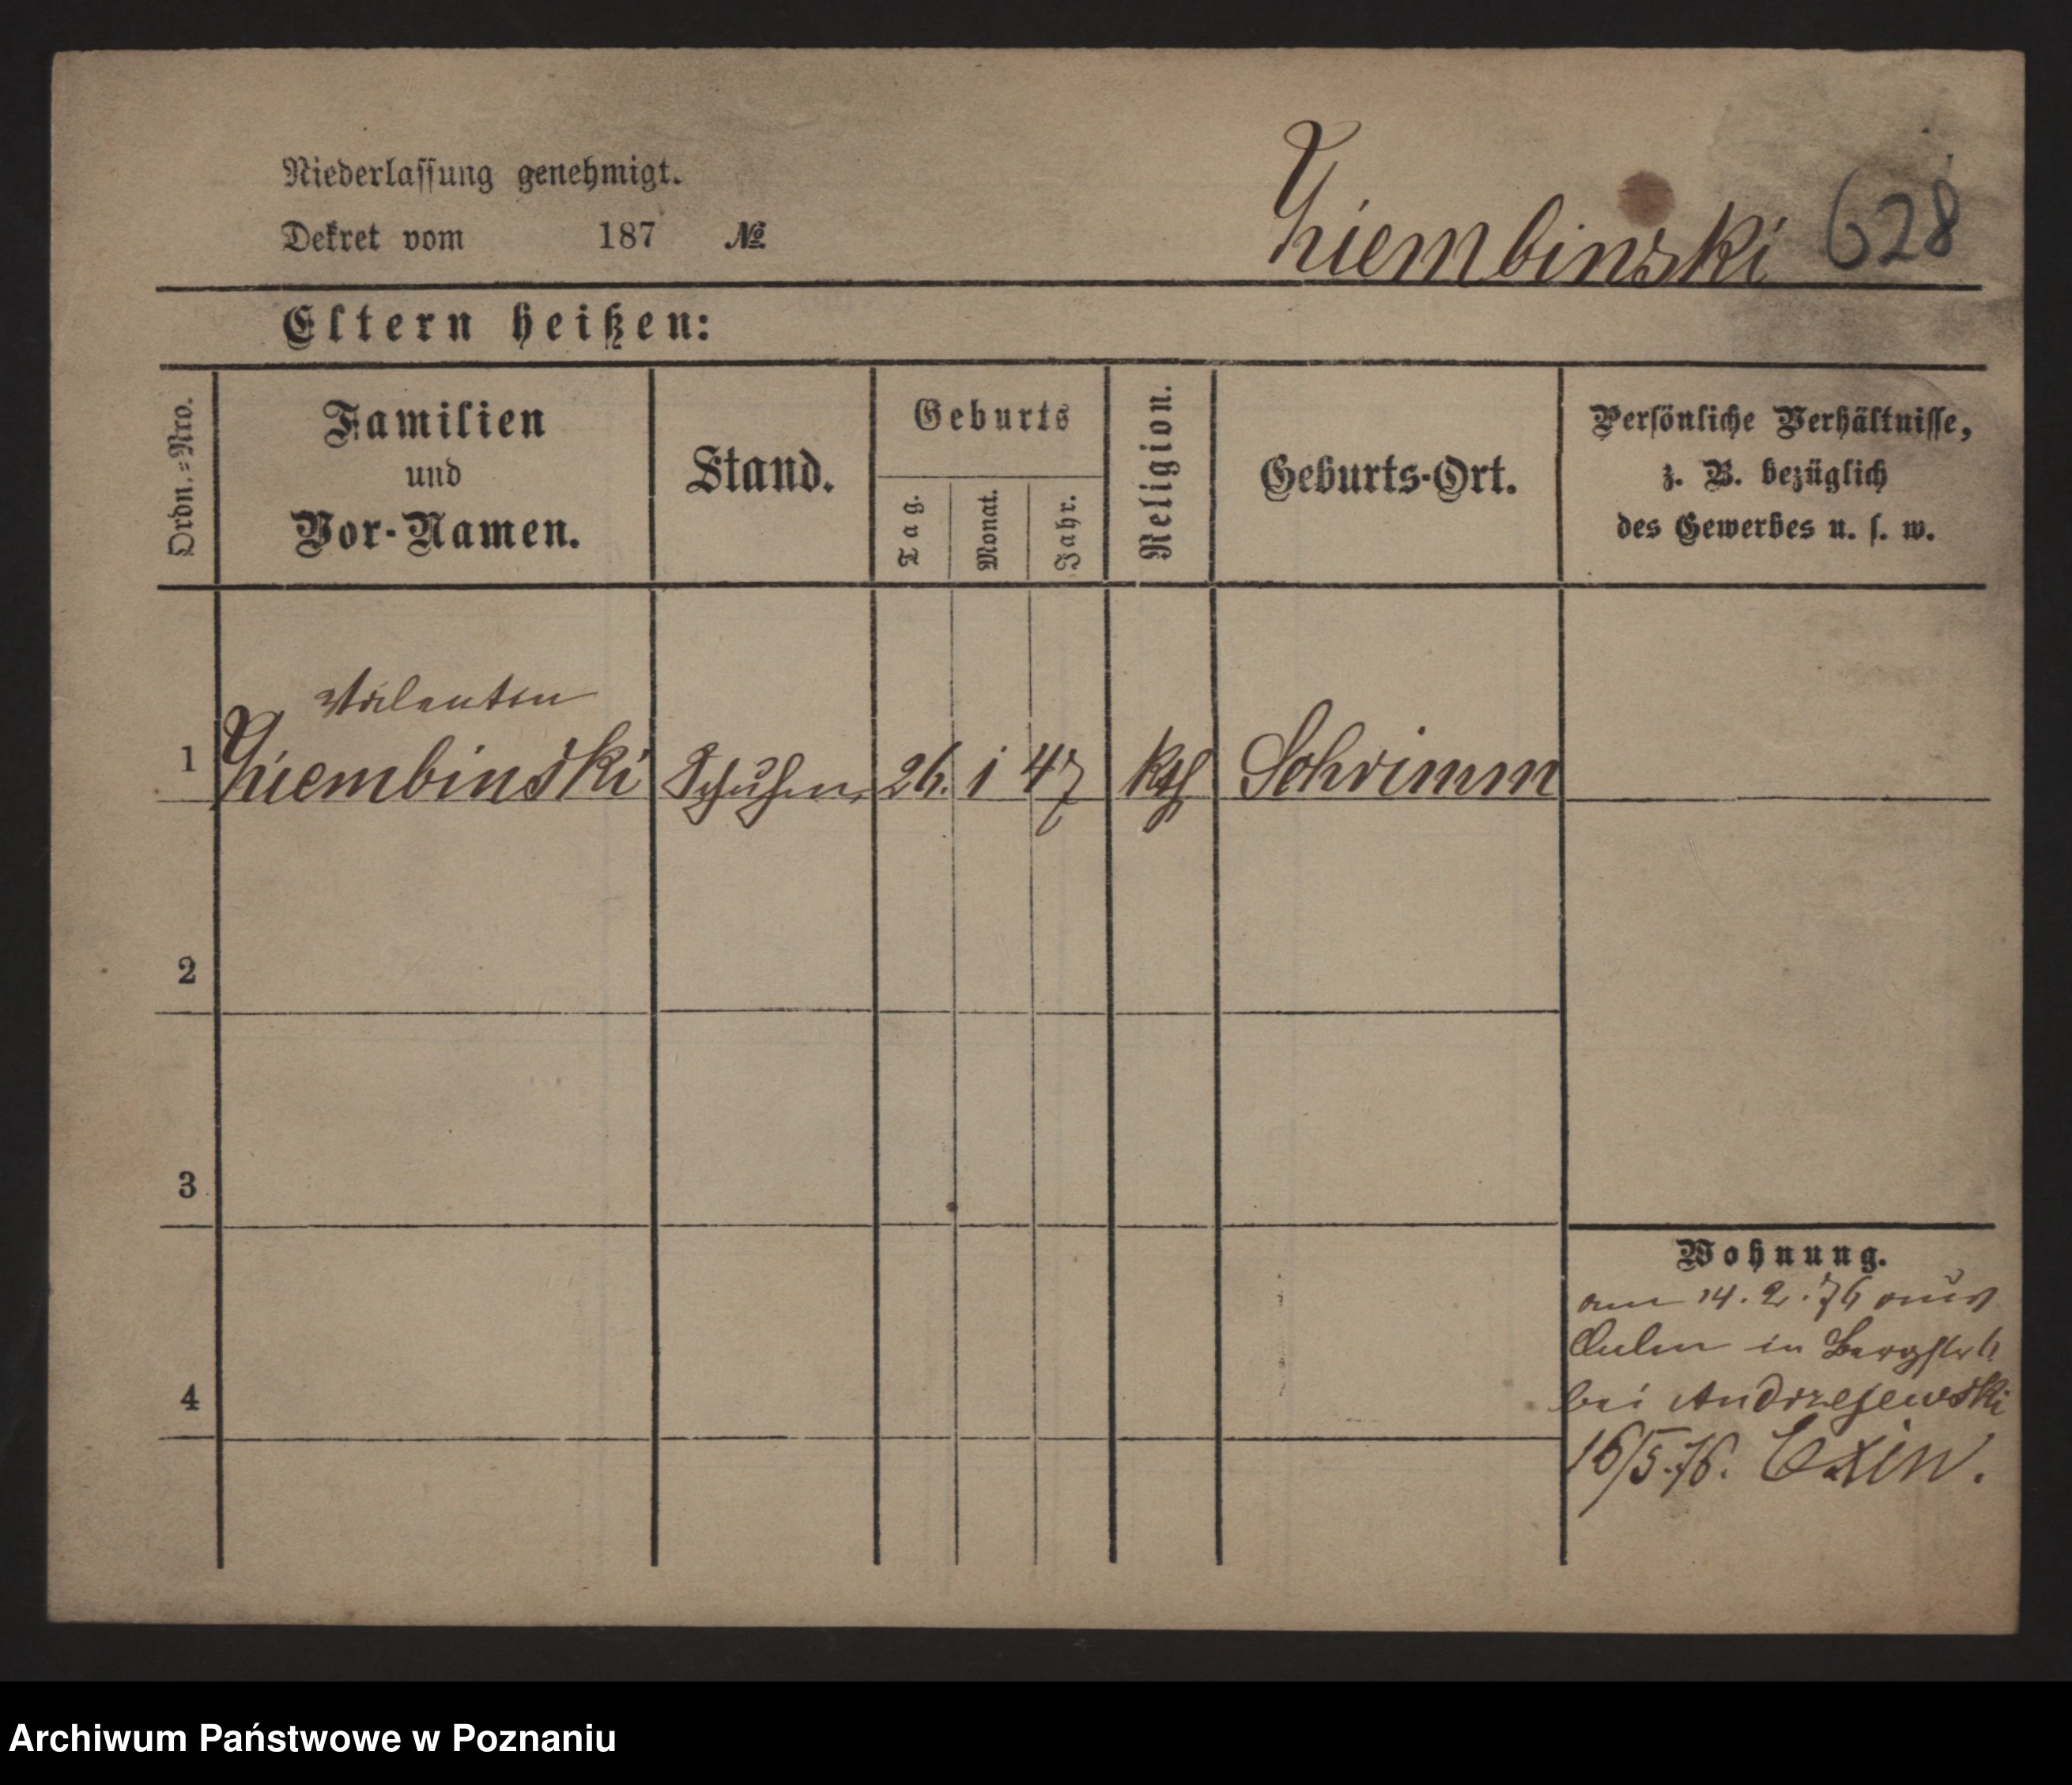 Niederlassung genehmigt.
Dekret vom 187 №
Ziembinski 628
Eltern heißen:
Ordn.=Nro.
Familien
und
Vor-Namen.
Stand.
Geburts
Tag.
Monat.
Jahr.
Religion.
Geburts-Ort.
Persönliche Verhältnisse,
z. B. bezüglich
des Gewerbes u. s. w.
Valentin
1 Ziembinski Schuhm. 26. 1 47 kth Schrimm
2
3
4
Wohnung.
am 14. 2. 76 aus
Culm in Bergstr 6
bei Andrzejewski
16/5.76. Exin.
Archiwum Państwowe w Poznaniu